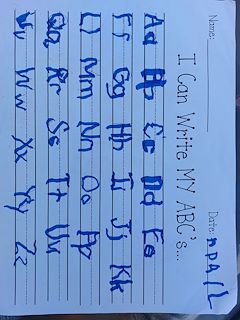 Name: Date: nPA/L
I Can Write MY ABC's...
Aa Bb Cc Dd Ee
Ff Gg Hh Ii Jj Kk
Ll Mm Nn Oo Pp
Qq Rr Ss Tt Uu
Vv Ww Xx Yy Zz